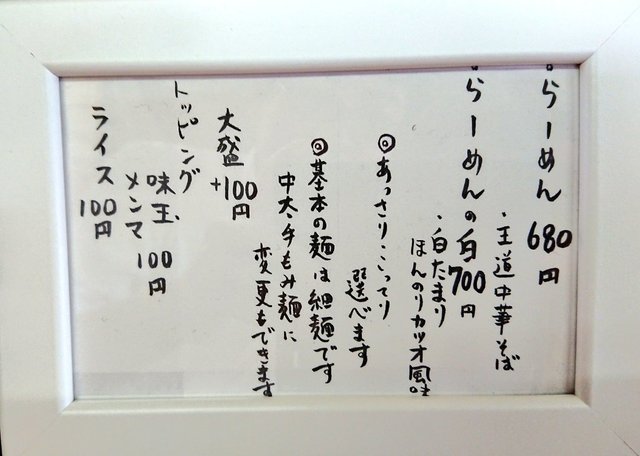 らーめん 680円
・王道中華そば
らーめんの白 700円
・白たまり
ほんのりカツオ風味
◎あっさり・こってり
選べます
◎基本の麺は細麺です
中太・手もみ麺に
変更もできます
大盛 +100円
トッピング
味玉、
メンマ 100円
ライス 100円